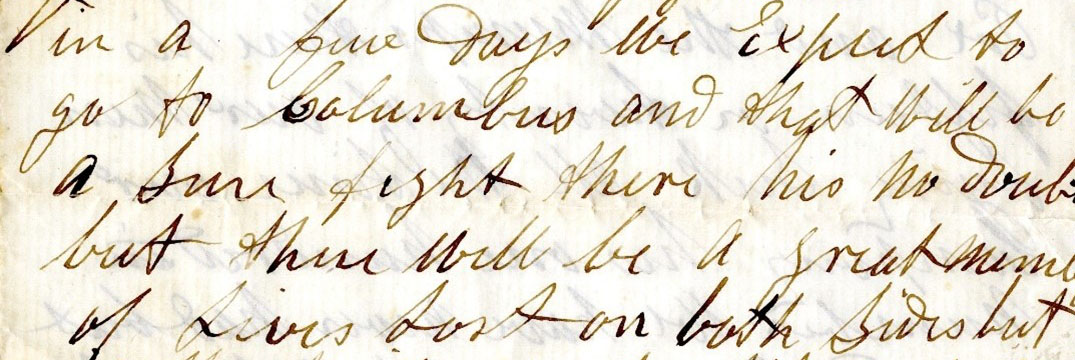 in a fiue Days We Expect to
go to Columbus and that Will be
a Sure fight there his no Doub
but there Will be a great
of Lives Lost on both Sides but